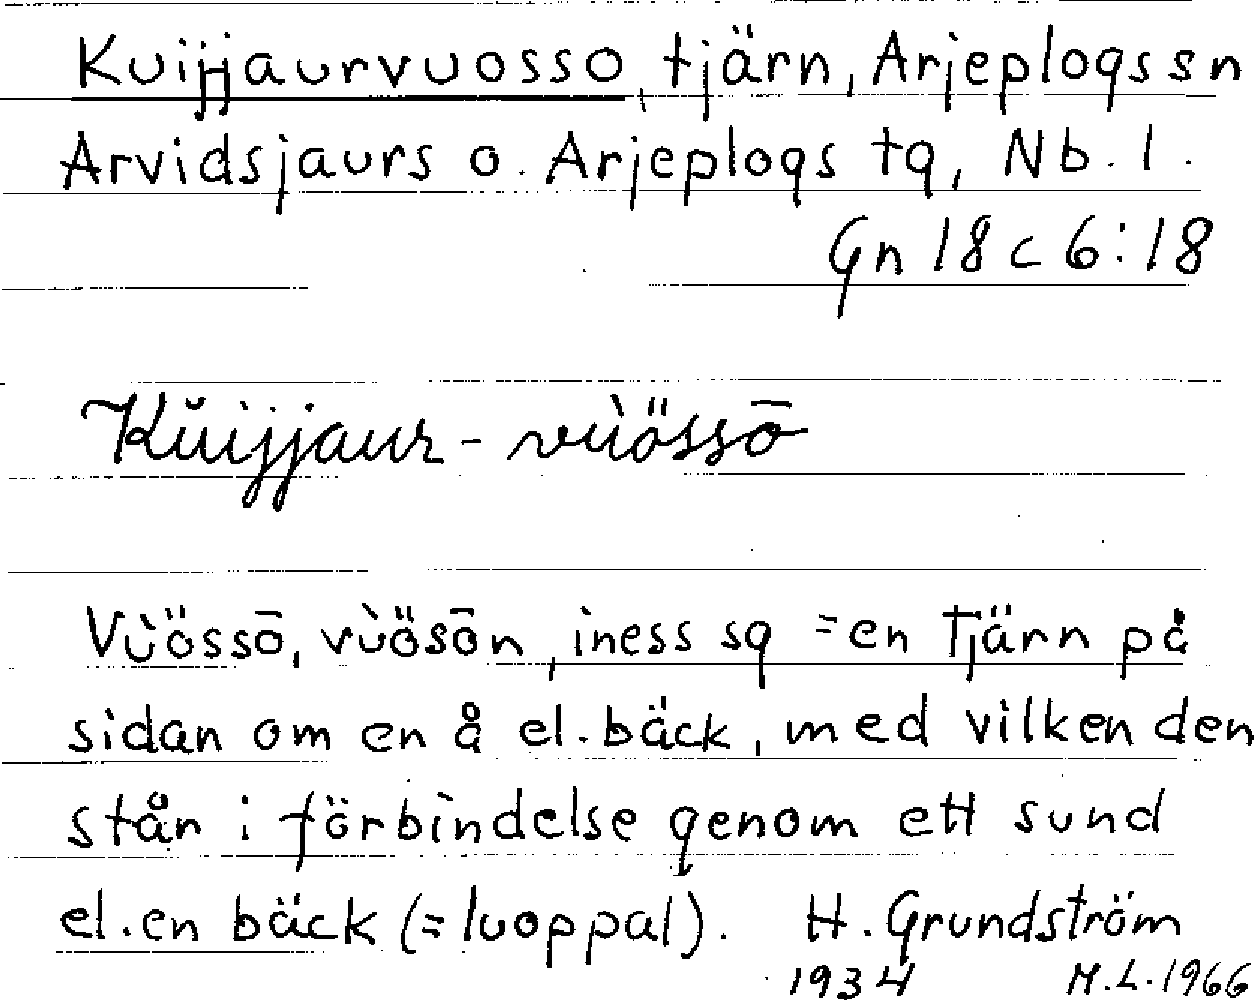 Kuijjaurvuosso, tjärn, Arjeplogs sn
Arvidsjaurs o. Arjeplogs tg, Nb. l.
Gn 18 c 6:18
Kŭijjaur-vùössō
Vùössō, vùösōn, iness sg = en tjärn på
sidan om en å el. bäck, med vilken den
står i förbindelse genom ett sund
el. en bäck (= luoppal). H. Grundström
1934 M.L. 1966